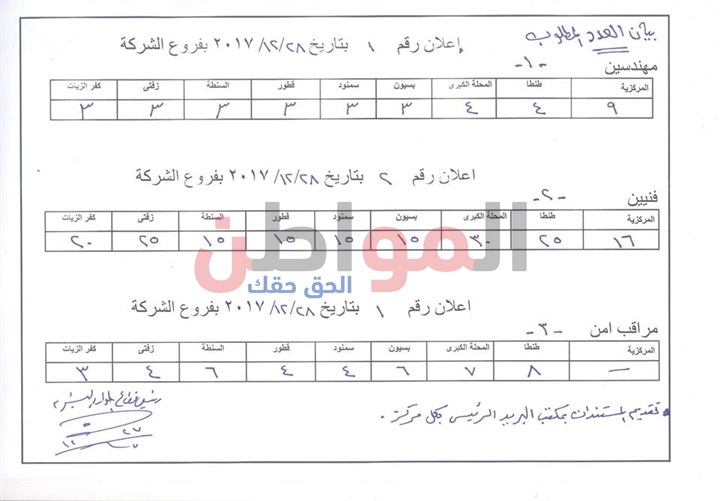 بيان العدد المطلوب
إعلان رقم ١ بتاريخ ٢٠١٧/١٢/٢٨ بفروع الشركة
-١-
مهندسين
المركزية طنطا المحلة الكبرى بسيون سمنود قطور السنطة زفتى كفر الزيات
٩ ٤ ٤ ٣ ٣ ٣ ٣ ٣ ٣
اعلان رقم ٢ بتاريخ ٢٠١٧/١٢/٢٨ بفروع الشركة
-٢-
فنيين
المركزية طنطا المحلة الكبرى بسيون سمنود قطور السنطة زفتى كفر الزيات
١٦ ٢٥ ٣٠ ١٥ ١٥ ١٥ ١٥ ٢٥ ٢٠
المواطن
الحق حقك
اعلان رقم ١ بتاريخ ٢٠١٧/١٢/٢٨ بفروع الشركة
-٣-
مراقب امن
المركزية طنطا المحلة الكبرى بسيون سمنود قطور السنطة زفتى كفر الزيات
— ٨ ٧ ٦ ٤ ٤ ٦ ٤ ٣
* تقديم المستندات بمكتب البريد الرئيسى بكل مركز .
رئيس قطاع الموارد البشرية